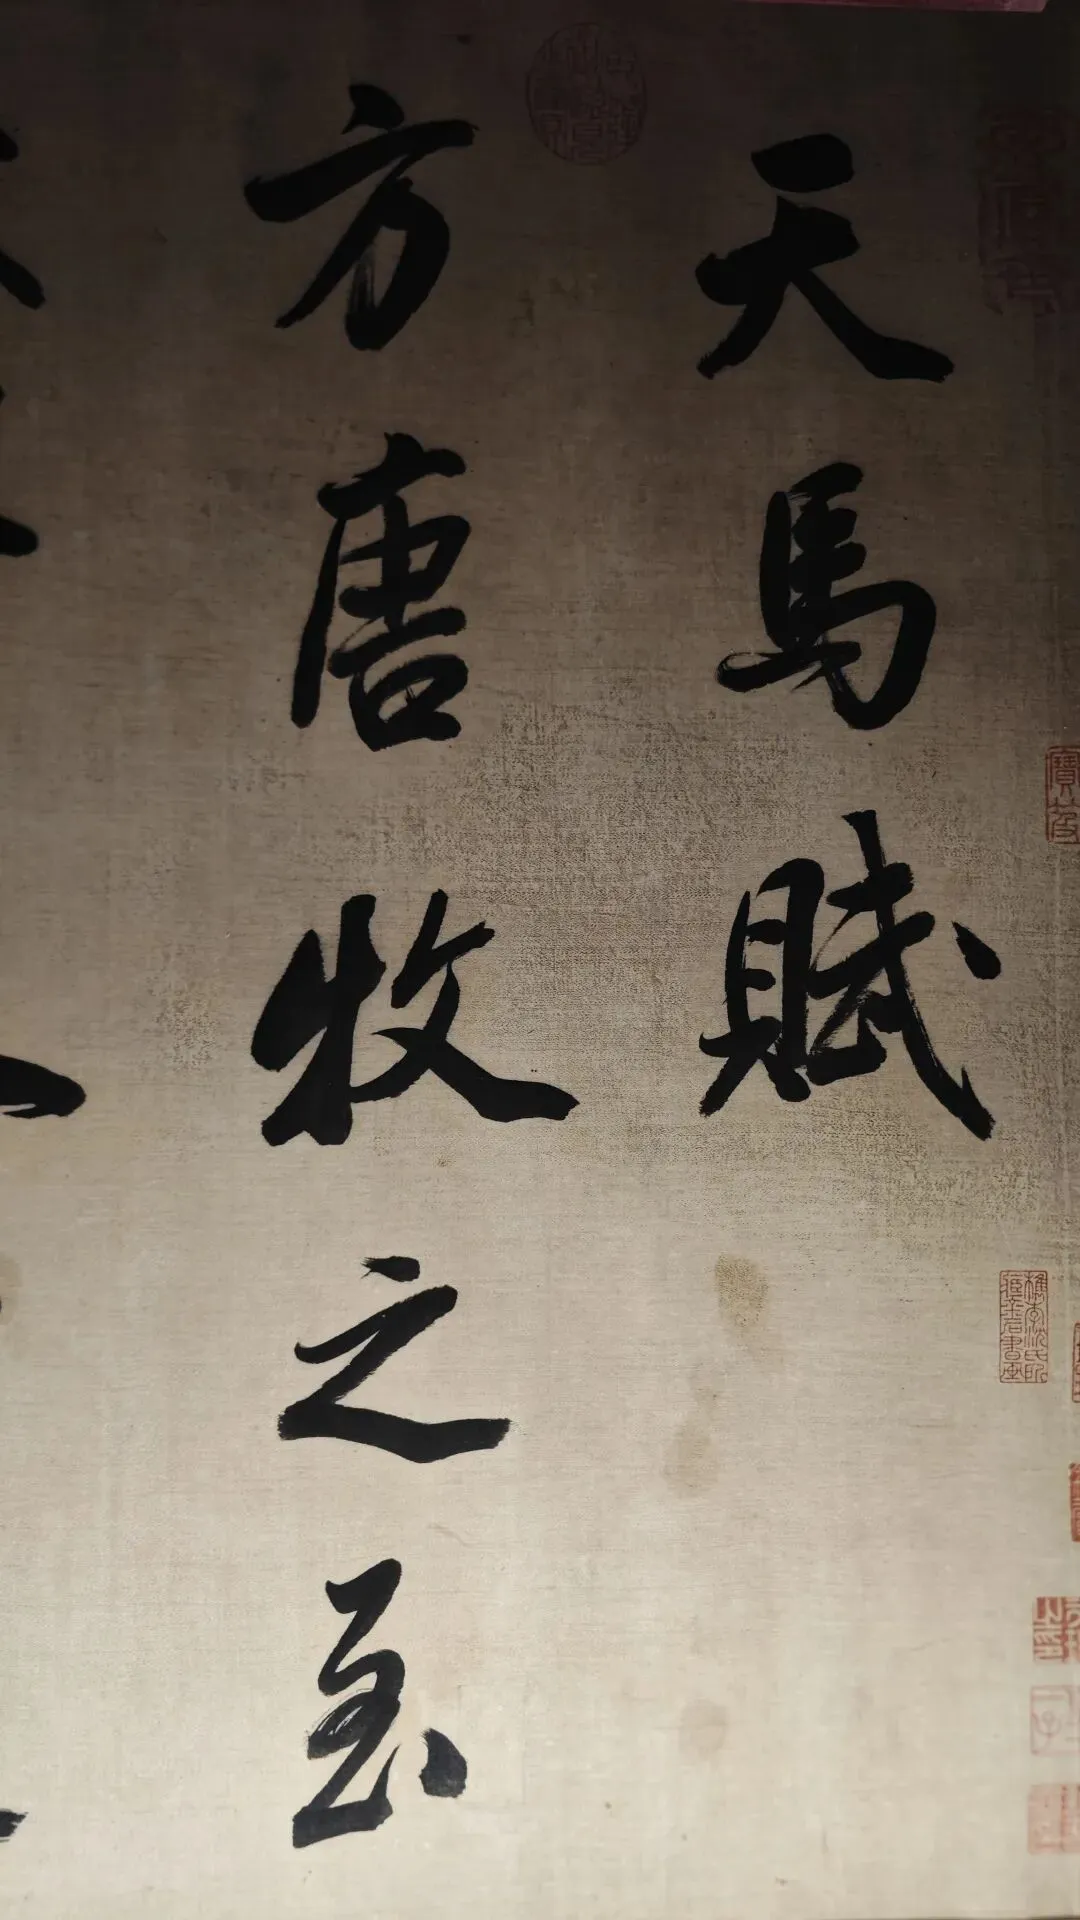 天馬賦
方唐牧之至